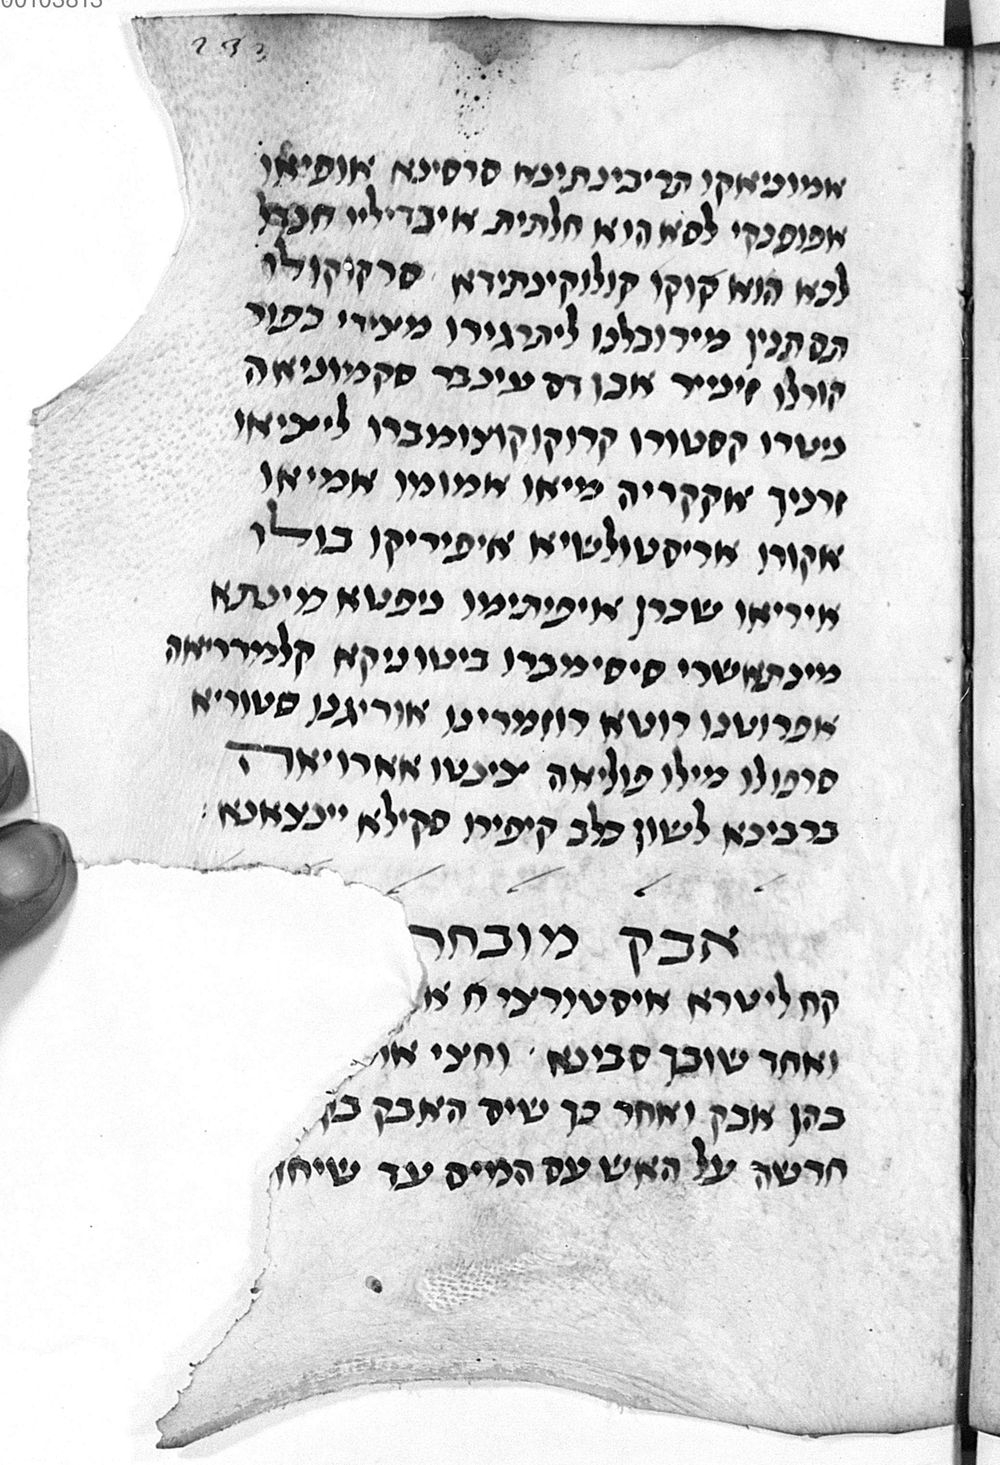 00103813
233
אמוניאקו תריבינתינא סרסינא אופיאו
אפופנקי לסא הוא חלתית איבדיליו חנדל
לכא הוא קוקו קולוקינתידא סרקוקולו
תסתנין מירובלנו ליתרגירו מצידי כפור
קורלו זימייר אבן דם עינבר סקמוניאה
ניטרו קסטורו קרוקוקוצומברו לייציאו
זרניך אקקריה מיאו אמומו אמיאו
אקורו אריסטולשיא איפיריקו בולו
איריאו שכרן איפיתימו ניפטא מינתא
מינתאשרי סיסימברו ביטוניקא קלמידריאה
אפרוטנו רוטא רוזמרינו אוריגנו סטוריא
סרפולו מילו פוליאה ציכטו אארויארה
ברבינא לשון כלב קיפירו סקילא יינצאנא :
אבק מובחר
קח ליטרא איסטורצי ח א
ואחד שובך סבינא וחצי או
בהן אבק ואחר כך שים האבק בק
חדשה על האש עם המים עד שיחז